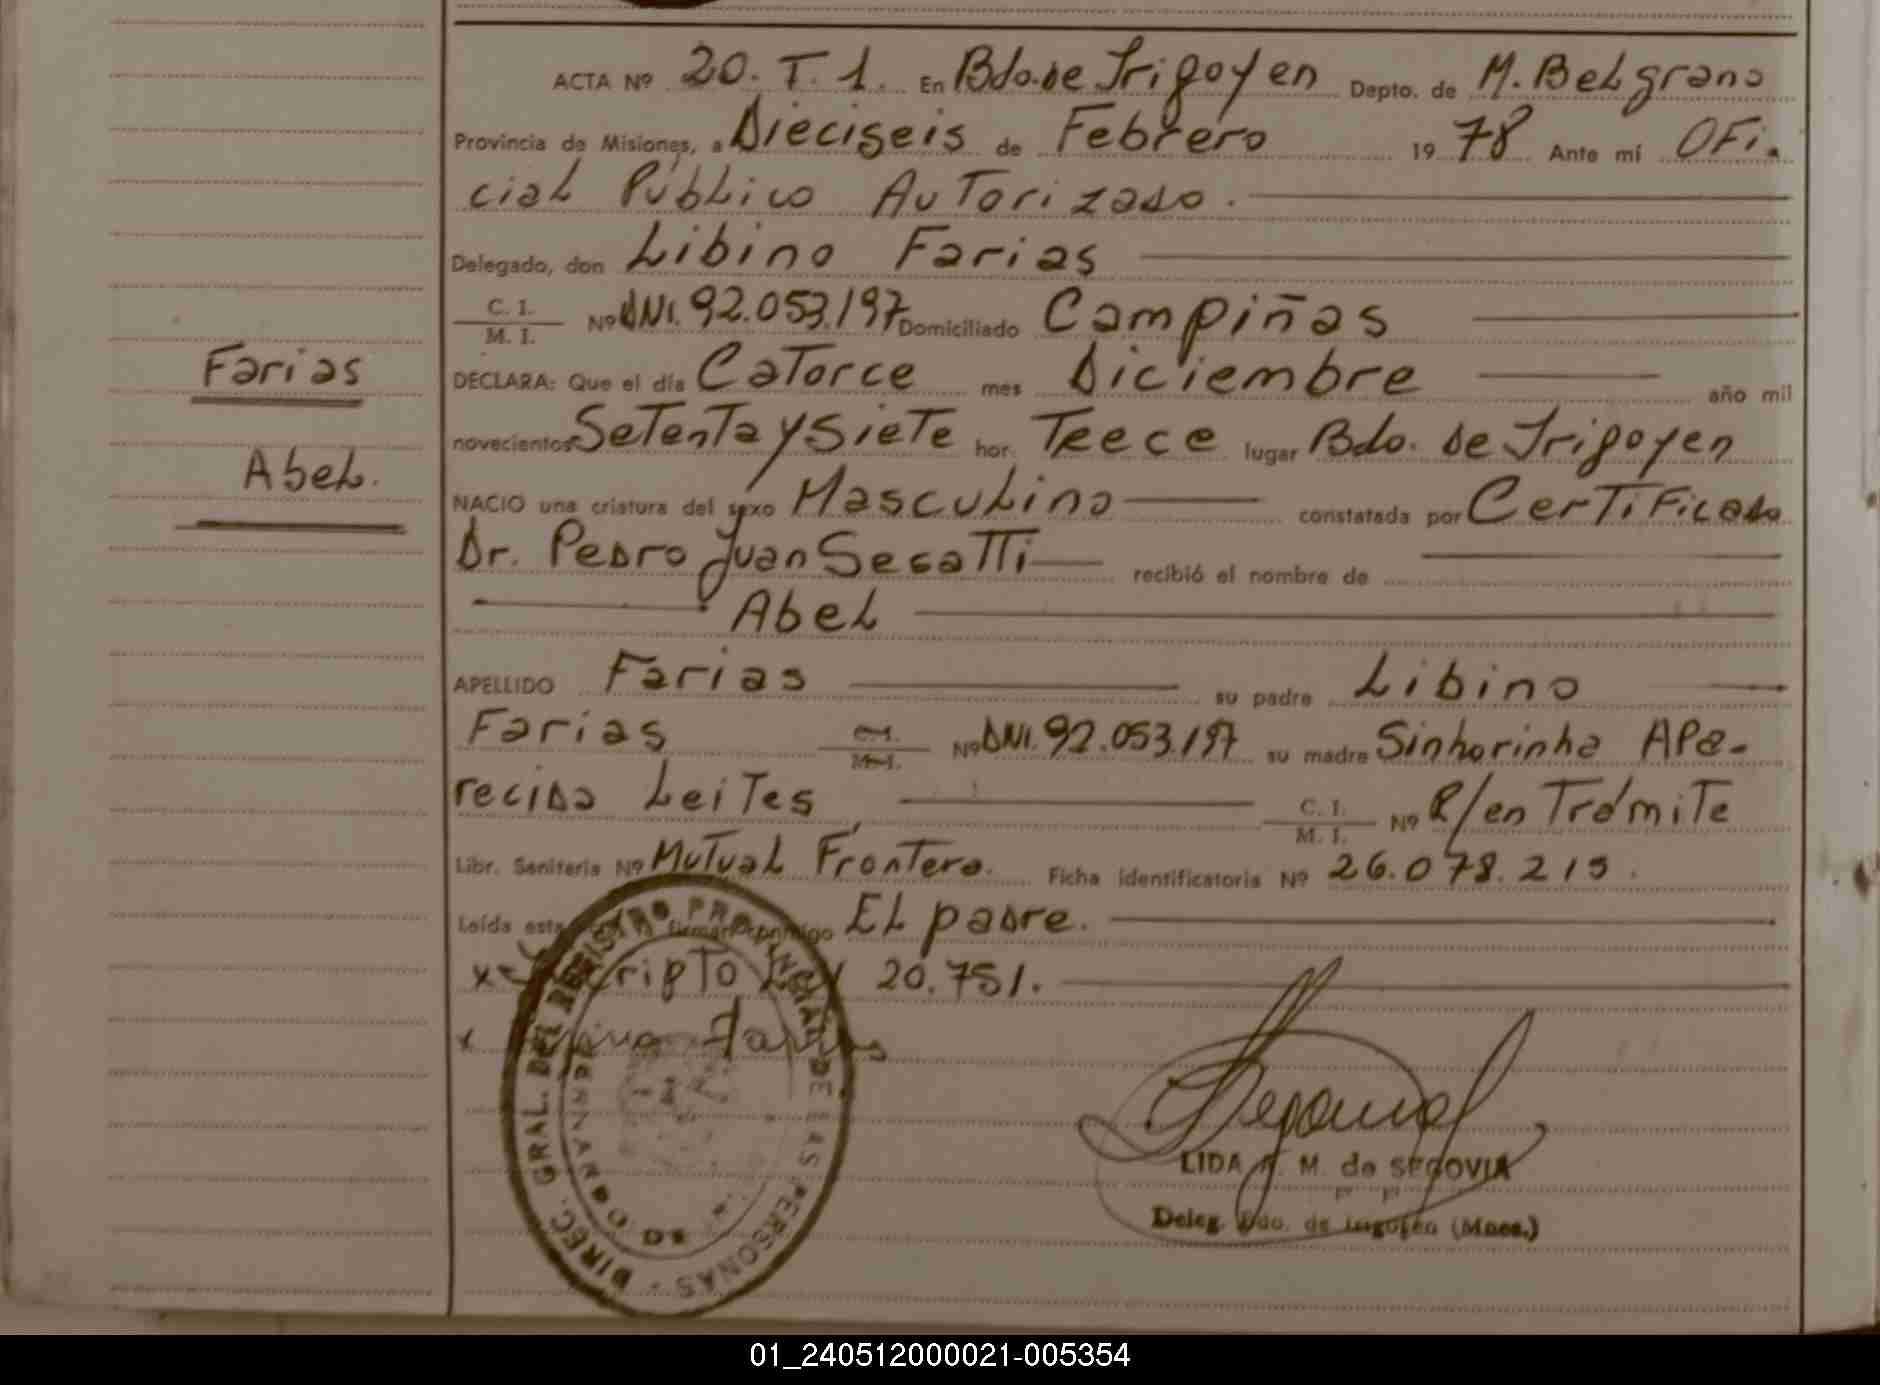 ACTA Nº 20. T. 1. En Bdo. de Irigoyen Depto. de M. Belgrano
Provincia de Misiones, a Dieciseis de Febrero 19 78 Ante mí Ofi-
cial Público Autorizado.
Delegado, don Libino Farias
C. I. / M. I. Nº DNI. 92.053.197 Domiciliado Campiñas
Farias
DECLARA: Que el día Catorce mes Diciembre año mil
novecientos Setenta y Siete hor. Trece lugar Bdo. de Irigoyen
Abel.
NACIO una criatura del sexo Masculino constatada por Certificado
Dr. Pedro Juan Segatti recibió el nombre de
Abel
APELLIDO Farias su padre Libino
Farias C.I. / M.I. Nº DNI. 92.053.197 su madre Sinhorinha Apa-
recida Leites C. I. / M. I. Nº R/en Trámite
Libr. Sanitaria Nº Mutual Frontera. Ficha identificatoria Nº 26.078.215.
Leída esta firman conmigo El padre.
20.751.
DIREC. GRAL. DEL REGISTRO PROVINCIAL DE LAS PERSONAS
LIDA M. de SEGOVIA
Deleg. Bdo. de Irigoyen (Mnes.)
01_240512000021-005354